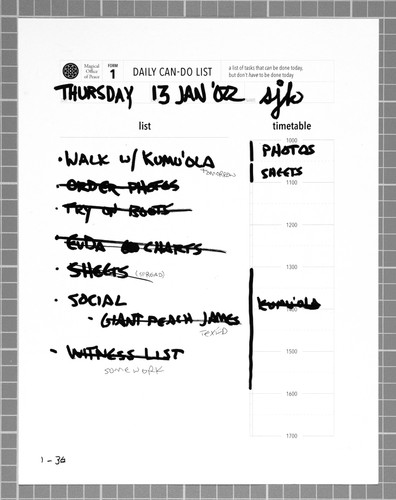 Magical
Office
of Peace
FORM
1
DAILY CAN-DO LIST
a list of tasks that can be done today,
but don't have to be done today
THURSDAY 13 JAN '022 sjb
list
timetable
· WALK W/ KUMU'OLA
TOMORROW
· ORDER PHOTOS
· TRY ON BOOTS
· CHARTS
· SHEETS (SPREAD)
· SOCIAL
· GIANT PEACH JAMES
TEXTED
· WITNESS LIST
SOME WORK
1000
PHOTOS
SHEETS
1100
1200
1300
KUMU'OLA
1400
1500
1600
1700
1-36